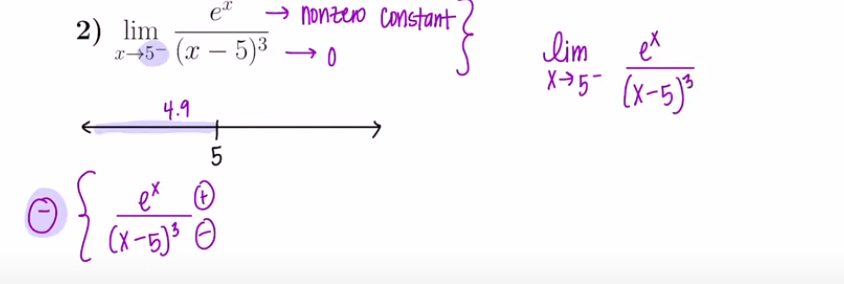 2) lim x→5⁻ e^x/(x − 5)³ → nonzero constant
→ 0
lim x→5⁻ e^x/(x-5)³
4.9
5
⊖ { e^x/(x-5)³ ⊕
⊖